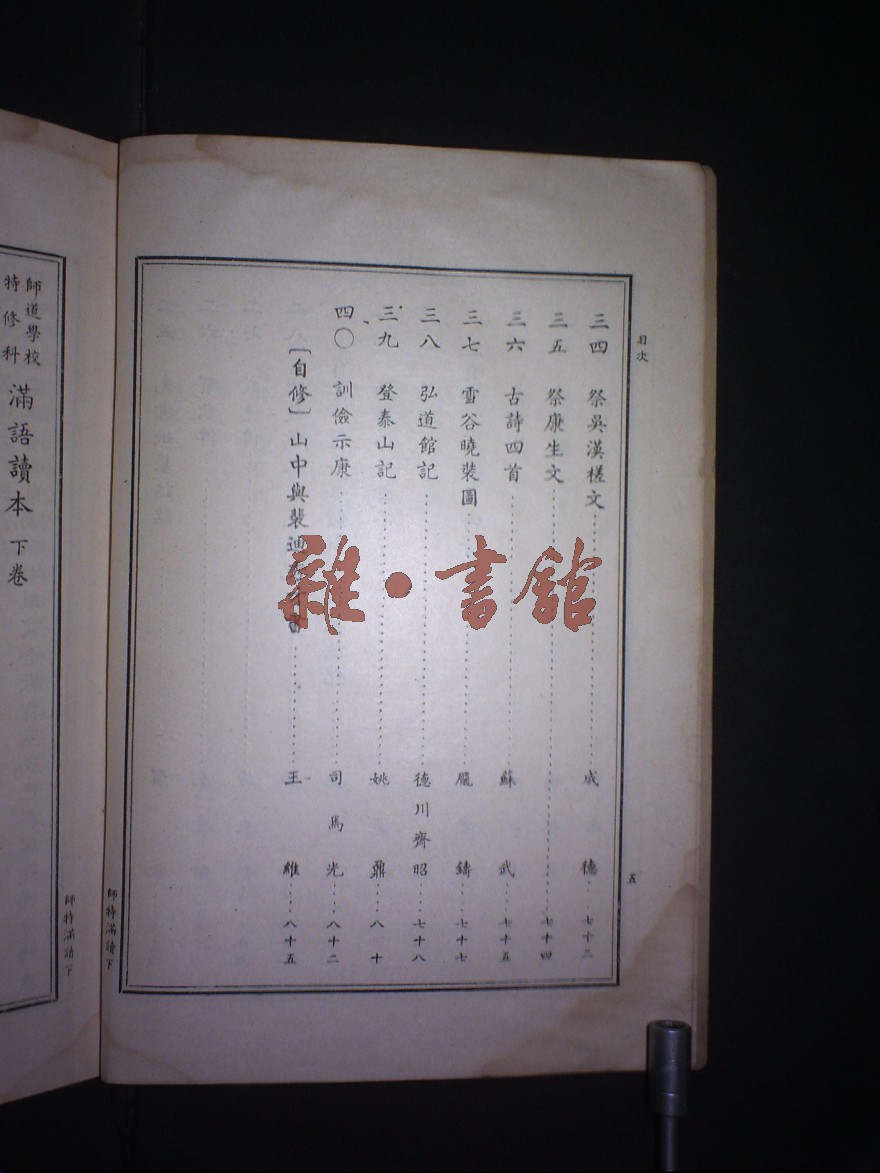 目次
五
三四 祭吳漢槎文 成德 七十三
三五 祭康生文 七十四
三六 古詩四首 蘇武 七十五
三七 雪谷曉裝圖 龐鑄 七十七
三八 弘道館記 德川齊昭 七十八
三九 登泰山記 姚鼐 八十
四〇 訓儉示康 司馬光 八十二
〔自修〕山中與裴迪 書 王維 八十五
師特滿讀下
師道學校
特修科
滿語讀本 下卷
師特滿讀下
雜·書館